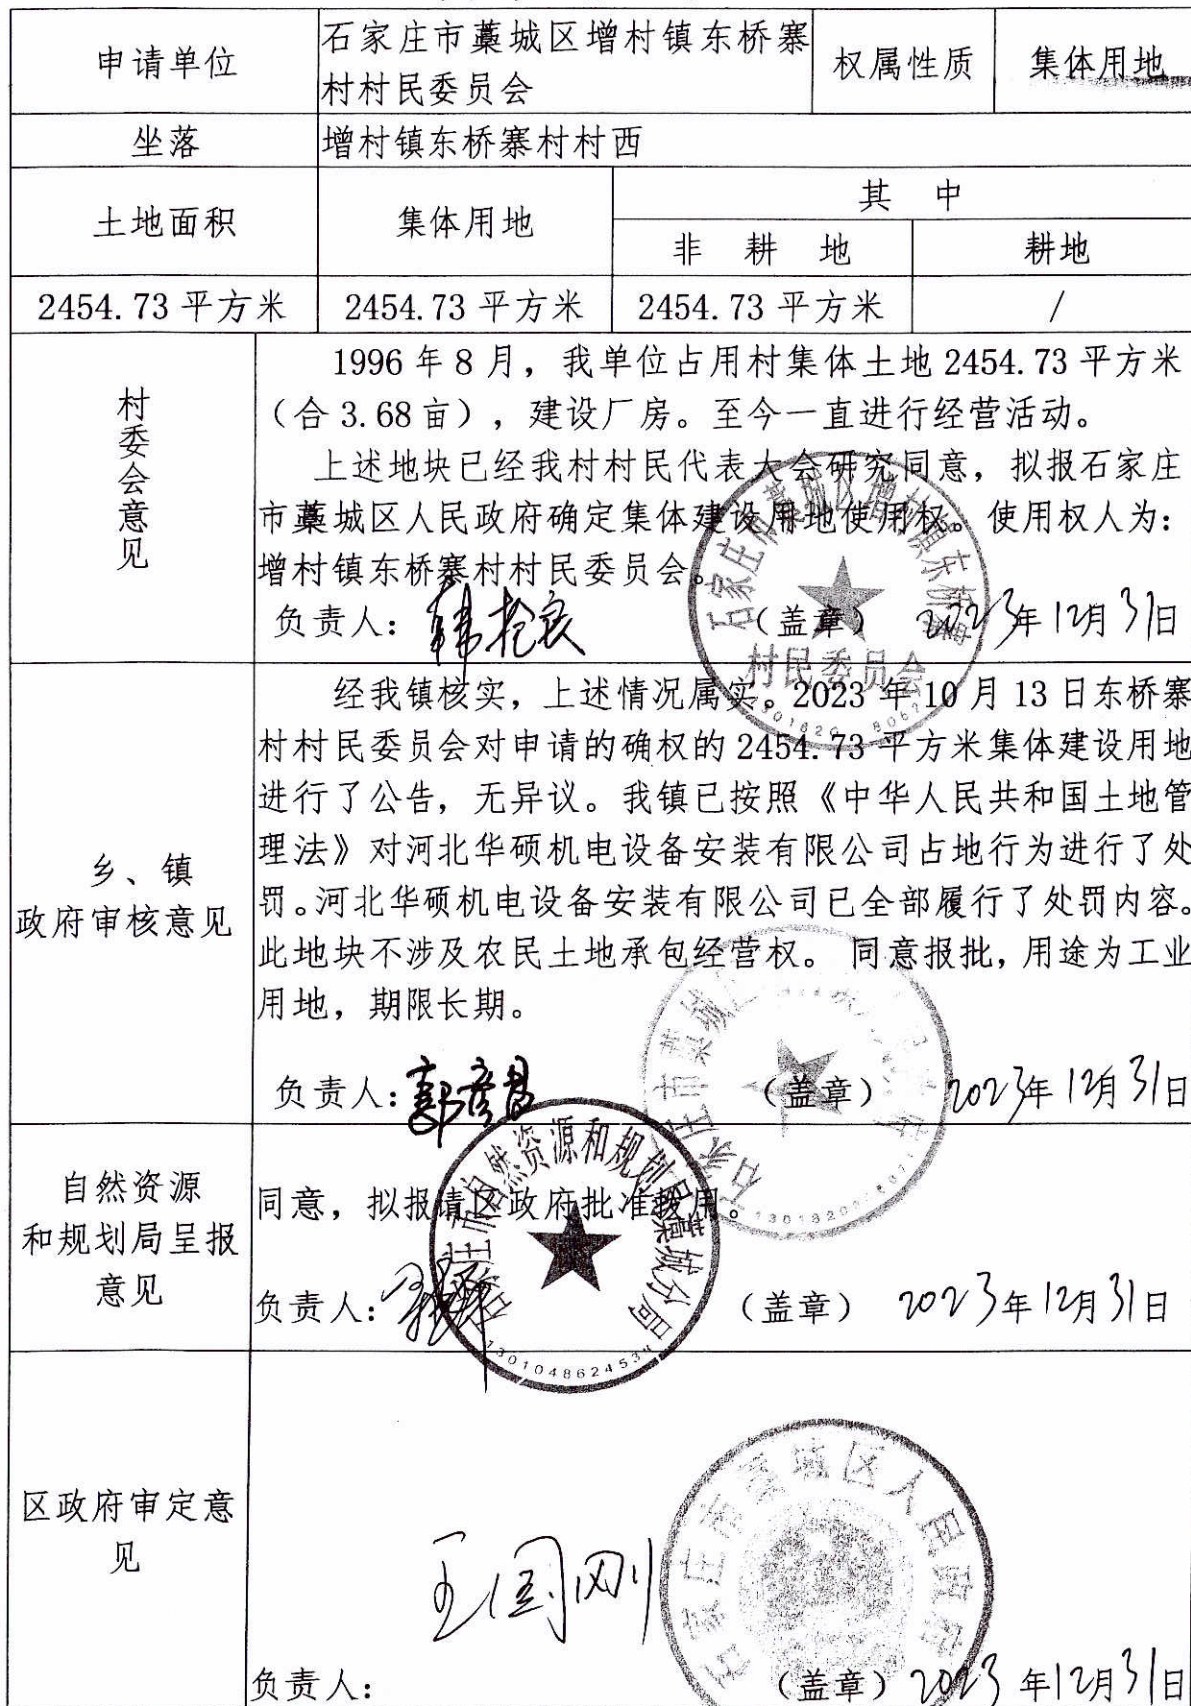 申请单位
石家庄市藁城区增村镇东桥寨
村村民委员会
权属性质
集体用地
坐落
增村镇东桥寨村村西
土地面积
集体用地
其 中
非 耕 地
耕地
2454.73 平方米
2454.73 平方米
2454.73 平方米
/
村委会意见
1996 年 8 月，我单位占用村集体土地 2454.73 平方米
（合 3.68 亩），建设厂房。至今一直进行经营活动。
上述地块已经我村村民代表大会研究同意，拟报石家庄
市藁城区人民政府确定集体建设用地使用权。使用权人为：
增村镇东桥寨村村民委员会。
负责人：
（盖章） 2023年12月31日
石家庄市藁城区增村镇东桥寨
村民委员会
乡、镇
政府审核意见
经我镇核实，上述情况属实。2023 年 10 月 13 日东桥寨
村村民委员会对申请的确权的 2454.73 平方米集体建设用地
进行了公告，无异议。我镇已按照《中华人民共和国土地管
理法》对河北华硕机电设备安装有限公司占地行为进行了处
罚。河北华硕机电设备安装有限公司已全部履行了处罚内容。
此地块不涉及农民土地承包经营权。 同意报批，用途为工业
用地，期限长期。
负责人：郭彦昌
（盖章） 2023年12月31日
自然资源
和规划局呈报
意见
同意，拟报请区政府批准拨用。
负责人：
（盖章） 2023年12月31日
石家庄市自然资源和规划局藁城分局
1301048624534
区政府审定意
见
王国刚
负责人：
（盖章）2023 年12月31日
石家庄市藁城区人民政府